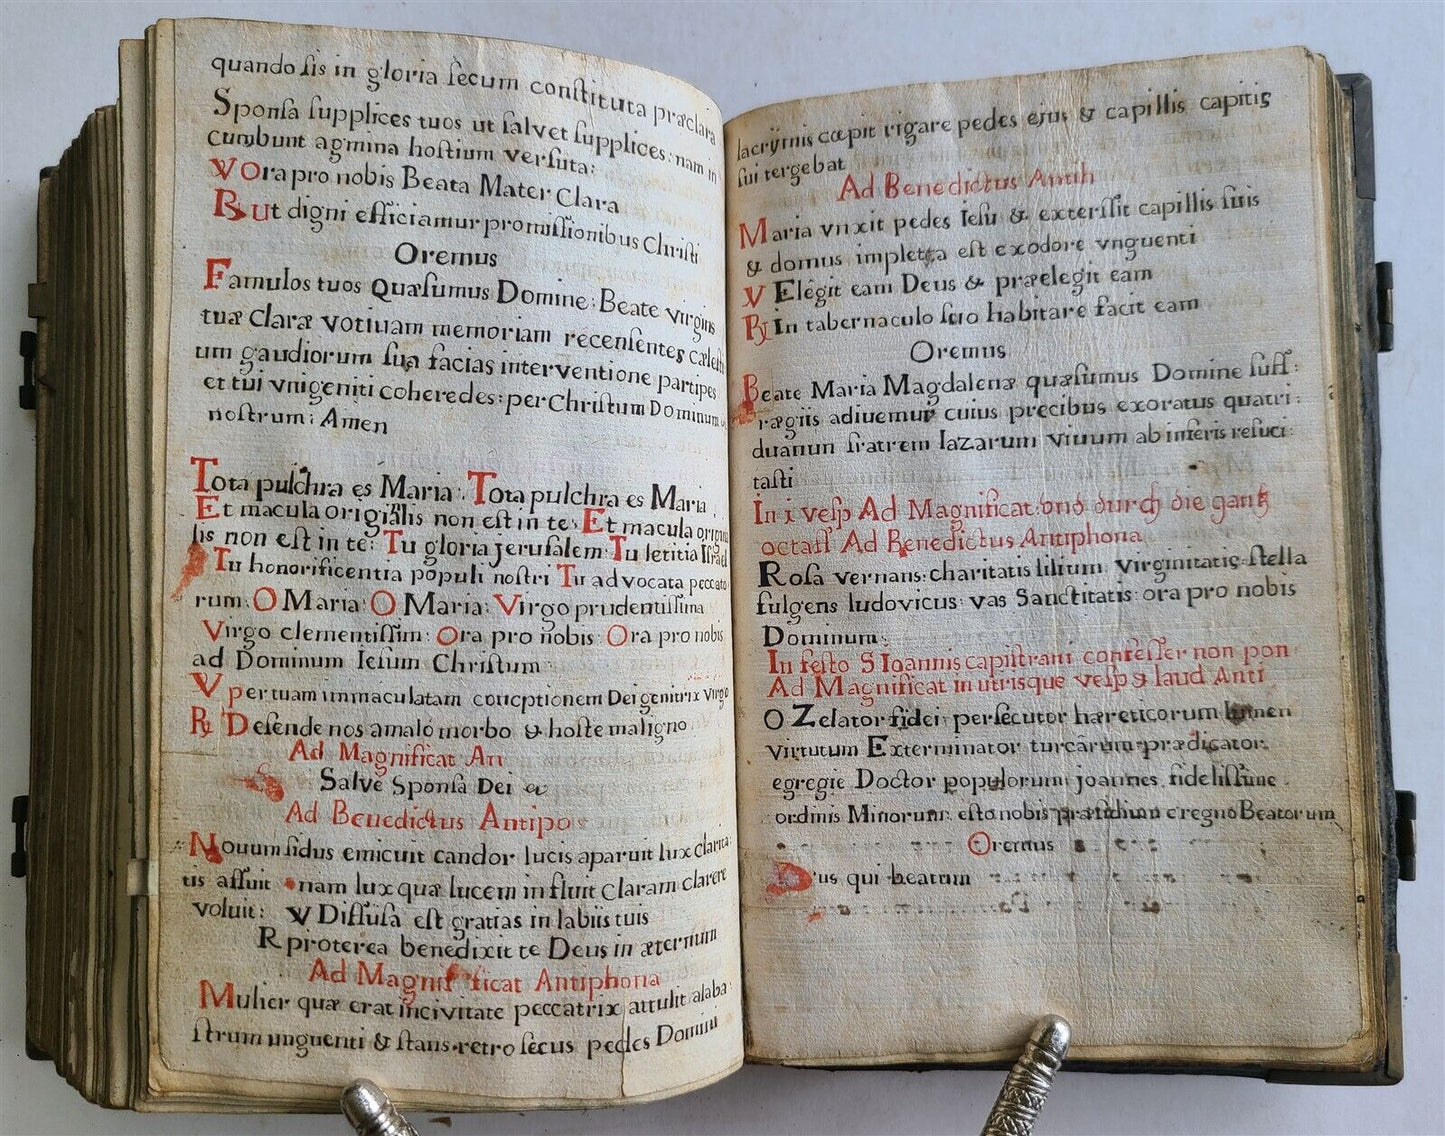 quando sis in gloria secum constituta præclara
Sponsa supplices tuos ut salvet supplices: nam in
cumbunt agmina hostium versuta:
V Ora pro nobis Beata Mater Clara
R ut digni efficiamur promissionibus Christi
Oremus
Famulos tuos Quæsumus Domine: Beate virginis
tuæ Claræ votivam memoriam recensentes cælesti
um gaudiorum sua facias interventione partipes
et tui vnigeniti coheredes: per Christum Dominum
nostrum: Amen
Tota pulchra es Maria: Tota pulchra es Maria
Et macula origiālis non est in te: Et macula origina
lis non est in te: Tu gloria jerusalem: Tu letitia Israel
Tu honorificentia populi nostri Tu advocata peccato
rum: O Maria: O Maria: Virgo prudentissima
Virgo clementissim: Ora pro nobis: Ora pro nobis
ad Dominum Iesum Christum
V per tuam immaculatam concptionem Dei genitrix virgo
R Defende nos amalo morbo & hoste maligno
Ad Magnificat An
Salve Sponsa Dei
Ad Benedictus Antipo
Novum sidus emicuit candor lucis aparuit lux clarita:
tis affuit nam lux quæ lucem influit Claram clarere
voluit: V Diffusa est gratias in labiis tuis
R proterea benedixit te Deus in æternum
Ad Magnificat Antiphona
Mulier quæ erat incivitate peccatrix attulit alaba
strum unguenti & stans retro secus pedes Domini
lacryimis cœpit rigare pedes ejus & capillis capitis
sui tergebat
Ad Benedictus Antih
Maria vnxit pedes Iesu & extersit capillis suis
& domus impletta est exodore vnguenti
V Elegit eam Deus & præelegit eam
R In tabernaculo suo habitare facit eam
Oremus
Beate Maria Magdalenæ quæsumus Domine suff:
rægiis adiuemur cuius precibus exoratus quatri:
duanun fratrem lazarum vivum ab inferis resuci:
tasti
In i vesp Ad Magnificat: und durch die gantz
octaff Ad Benedictus Antiphona
Rosa vernans: charitatis lilium: virginitatis: stella
fulgens ludovicus: vas Sanctitatis: ora pro nobis
Dominum:
In festo S Ioannis capistrani confesser non pon
Ad Magnificat in utrisque vesp & laud Anti
O Zelator fidei: persecutor hæreticorum lumen
virtutum Exterminator turcarum prædicator
egregie Doctor populorum joannes fidelissime
ordinis Minorum: esto nobis præsidium e regno Beatorum
Oremus
Deus qui beatum